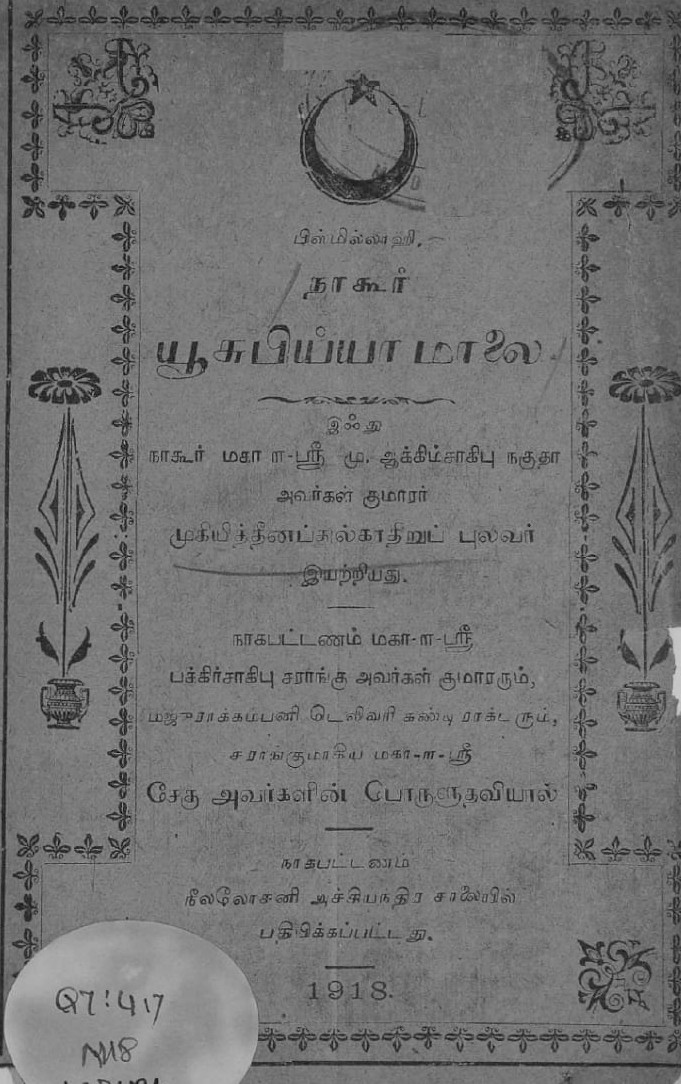 பிஸ்மில்லாஹி.
நாகூர்
யூசுபிய்யா மாலை.
இஃது
நாகூர் மகா-ள-ஸ்ரீ மு. ஆக்கிம்சாகிபு நகுதா
அவர்கள் குமாரர்
முகியித்தீனப்துல்காதிறுப் புலவர்
இயற்றியது.
நாகபட்டணம் மகா-ள-ஸ்ரீ
பக்கிர்சாகிபு சராங்கு அவர்கள் குமாரரும்,
மதுராக்கம்பனி டெலிவரி கண்டி ராக்டரும்,
சராங்குமாகிய மகா-ள-ஸ்ரீ
சேது அவர்களின் பொருளுதவியால்
நாகபட்டணம்
நீலலோசனி அச்சியந்திர சாலையில்
பதிப்பிக்கப்பட்டது.
1918.
Q7:417
N18